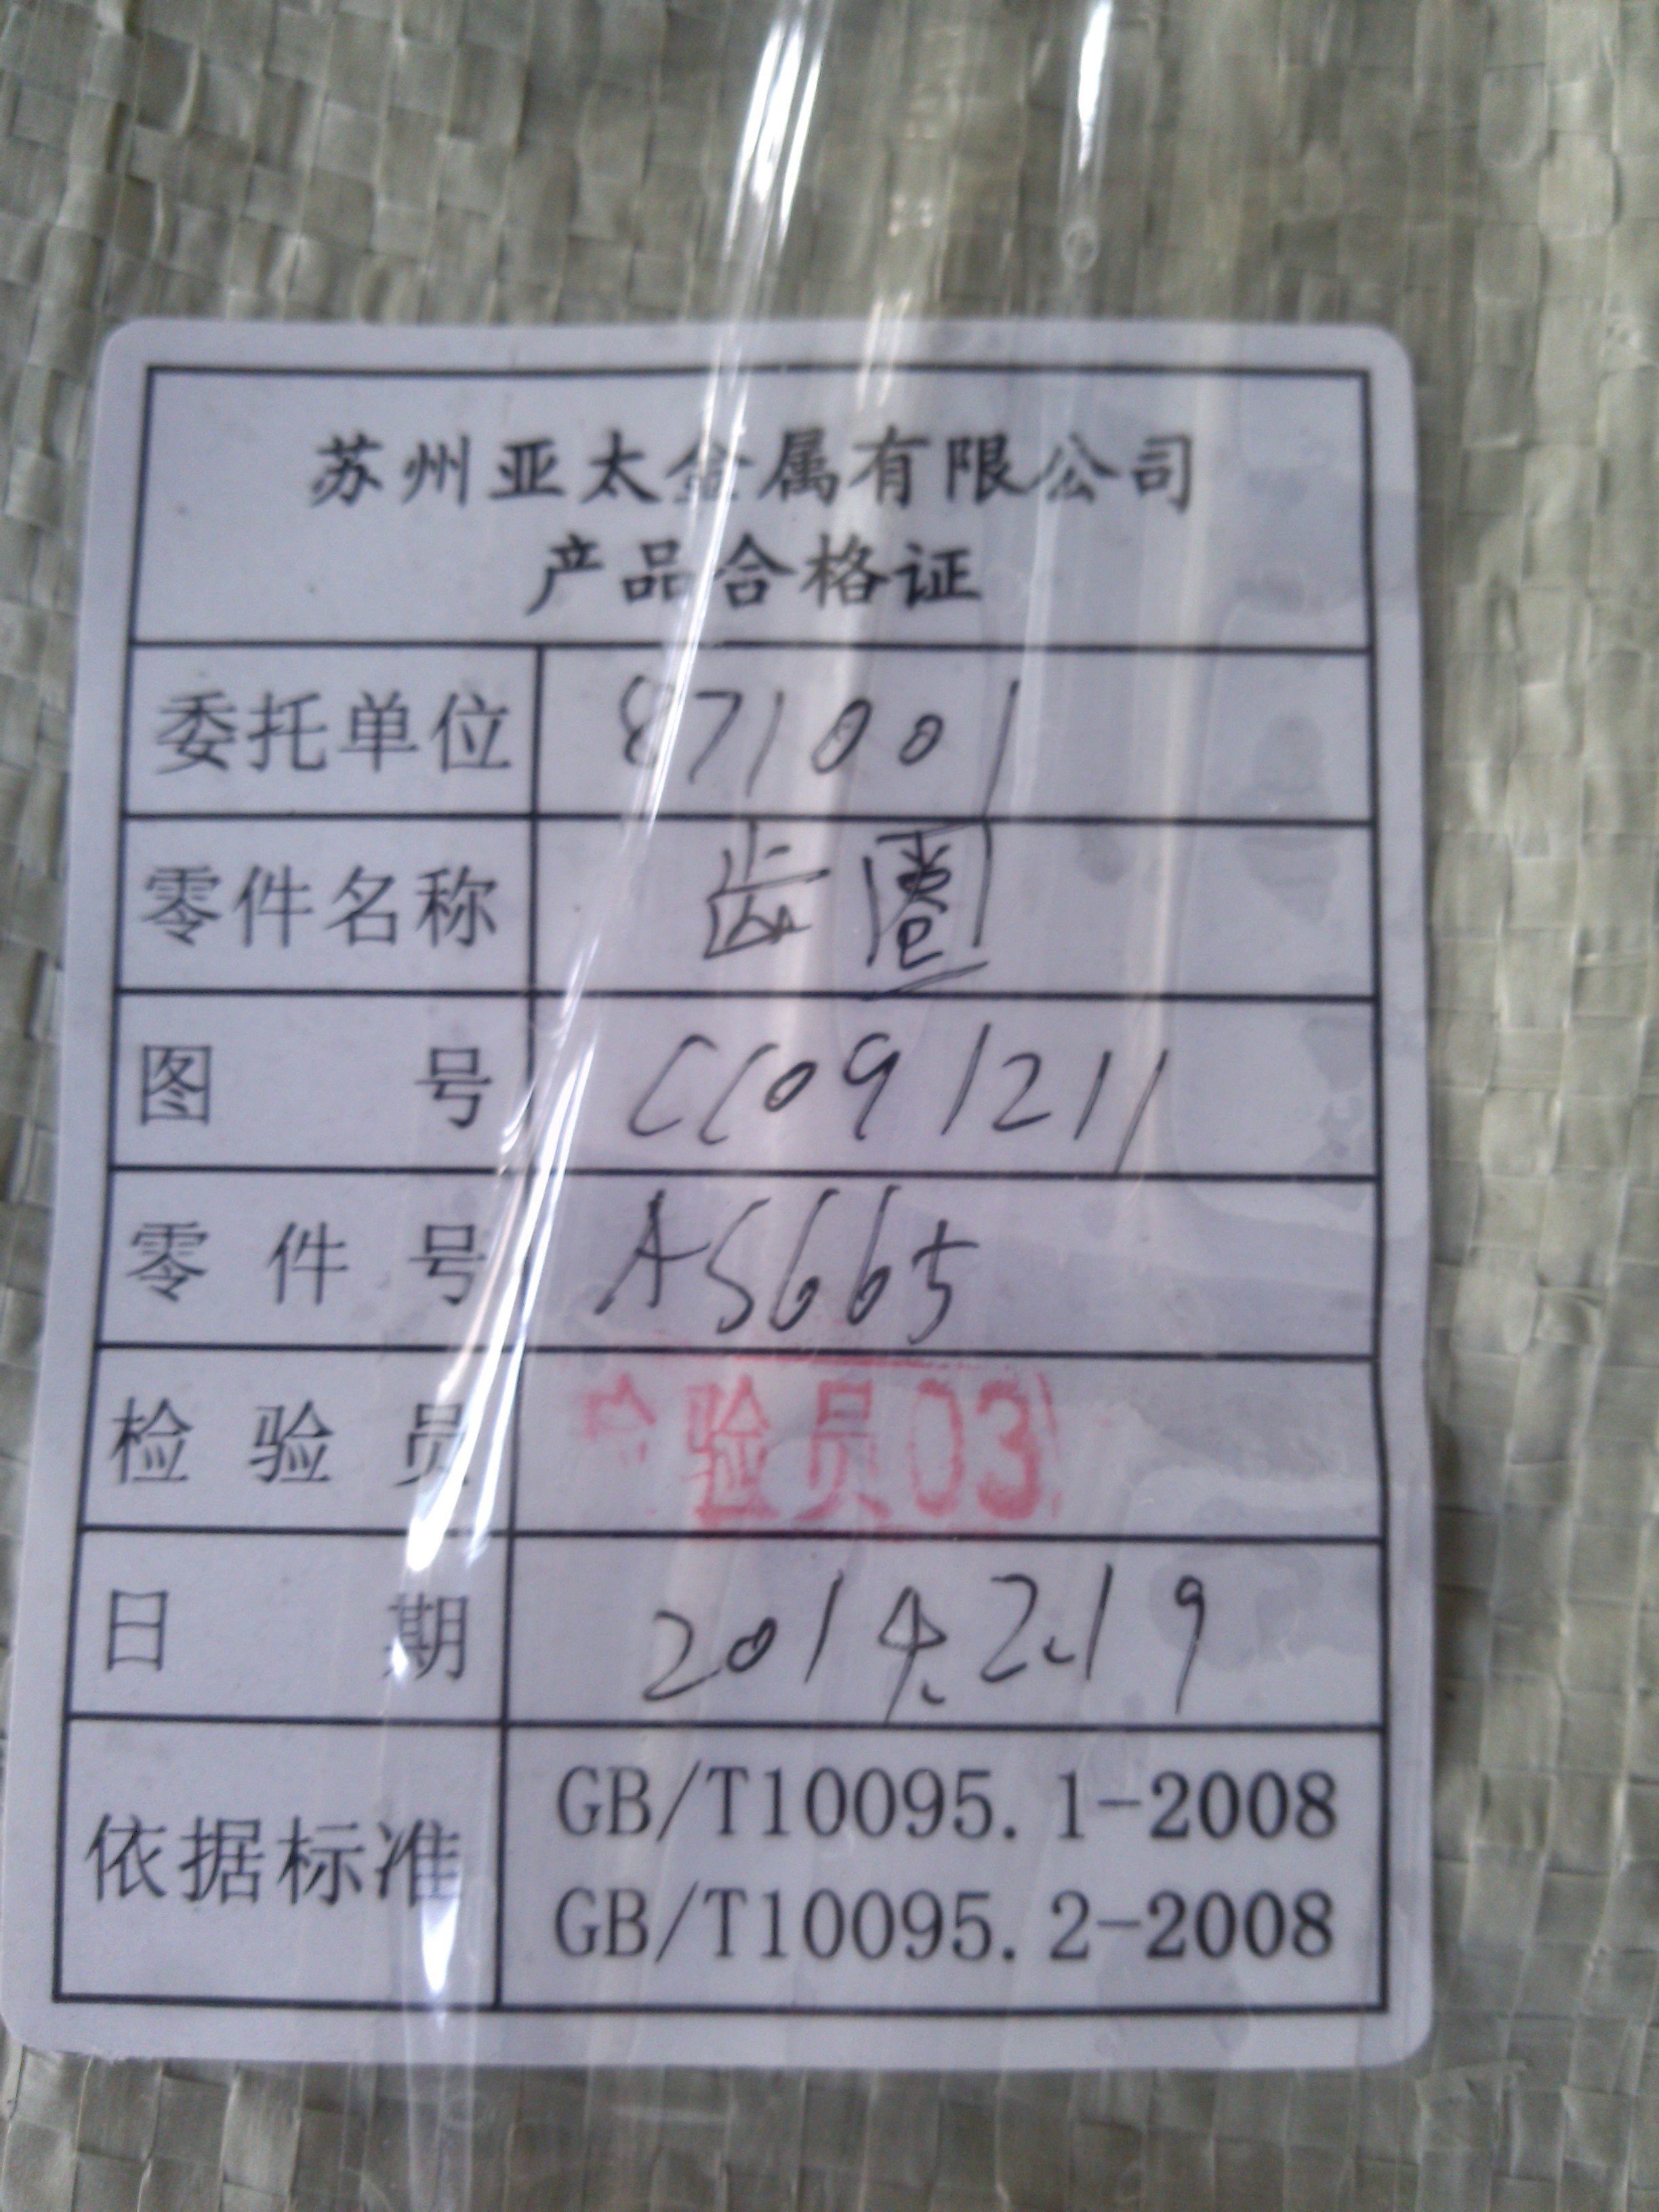 苏州亚太金属有限公司
产品合格证
委托单位 871001
零件名称 齿圈
图号 CC091211
零件号 AS665
检验员 检验员03
日期 2014.2.19
依据标准 GB/T10095.1-2008
GB/T10095.2-2008